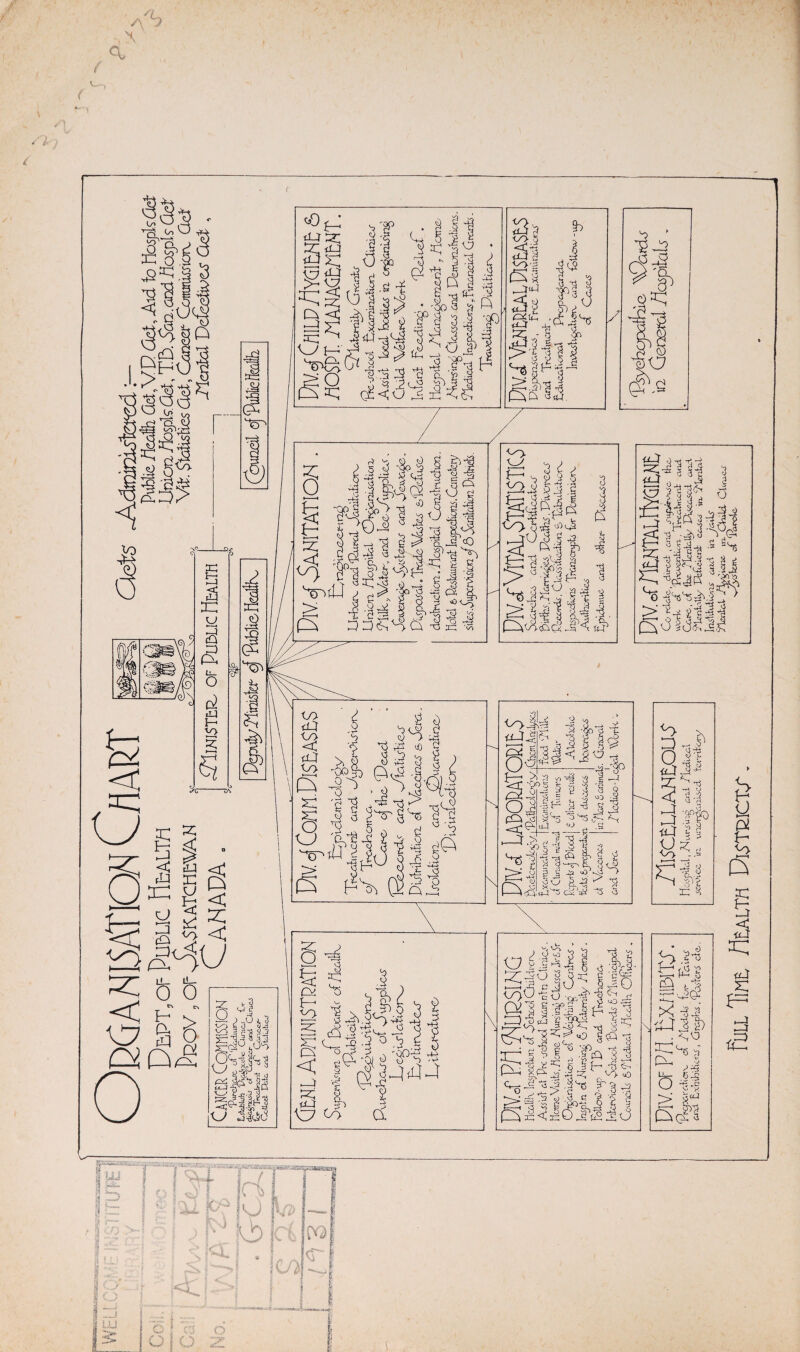 ORGANISATION CHART
DEPT, OF PUBLIC HEALTH
PROV, OF SASKATCHEWAN
CANADA.
Acts Administered:—
Public Health Act, V.D. Act, Aid to Hospls Act
Union Hospls Act, T.B. San. and Hospls Act
Vit. Statistics Act, Cancer Commission Act
Mental Defectives Act.
MINISTER OF PUBLIC HEALTH
Council of Public Health
Deputy Minister of Public Health
CANCER COMMISSION
Purchase of Radium
Establish Diagnostic Clinics for
diagnosis of Cancer and Clinics
for Treatment of Cancer
Collect Data and Statistics
GENL ADMINISTRATION
Supervision of Boards of Health
Publicity
Requisitions
Purchase of Supplies
Legislation
Estimates
Literature
DIV. of COMM DISEASES
Epidemiology
Treatment and Supervision
of Trachoma:
Care of the Dead:
Records and Statistics
Distribution of Vaccines & Sera.
Isolation and Quarantine
Disinfection
DIV. of SANITATION.
Engineering
Urban and Rural Sanitation
Union Hospital Organisation
Milk, Water, and Ice Supplies.
Sewerage Systems and Sewage.
Disposal. Trade Wastes & Refuse
destruction. Hospital Construction.
Hotel & Restaurant Inspections. Cemetery
sites. Supervision of 8 Sanitation Districts
DIV. of CHILD HYGIENE &
HOSPT. MANAGEMENT.
Maternity Grants
Pre-school Examination Clinics
Assist local bodies in organising
Child Welfare Work
Infant Feeding. Relief.
Hospital Management, Home
Nursing Classes and Demonstrations.
Medical Inspections, Financial Grants.
Travelling Dietitian.
DIV. of P.H. NURSING
Health Inspection of School Children
Assist at Pre-school Examntn Clinics.
Home Visits, Home Nursing Classes, Jr & Sr
Organisation of Weighing Centres.
Inptn of Nursing & Maternity Homes.
Follow-up TB and Trachoma
Interview School Boards & Municipal
Councils & Medical Health Officers.
DIV. of LABORATORIES
Bacteriology / Pathology / Chem Analyses
Examination of Clinical material
Reports of Blood tests & preparation of Vaccines and Sera
Examinations of Tumors & other mtls of diseases in Man & animals
Food Milk Water Alcoholic beverages General
Medico-Legal Work.
DIV. of VITAL STATISTICS
Searches and Certificates
Births, Marriages, Deaths, Divorces
Records, Classification & Tabulation
Inspections Transcripts for Dominion
Authorities
Epidemic and other Diseases
DIV. of VENEREAL DISEASES
Dispensaries, Free Examinations
and Treatment.
Educational Propaganda
Investigation and follow-up
of Cases
DIV. OF P.H. EXHIBITS.
Preparation of Models for Fairs
and Exhibitions, Graphs, Posters etc.
MISCELLANEOUS
Hospital, Nursing and Medical
service in unorganised territory
DIV. of MENTAL HYGIENE
Co-relate, direct, and supervise the
work of Prevention, Treatment and
Care of the Mentally Diseased and
Mentally Deficient cases in Mental
Institutions and in jails
Mental Hygiene in Child Clinics
System of Parole
Psychopathic Wards
in General Hospitals.
FULL TIME HEALTH DISTRICTS.
WELLCOME INSTITUTE
Coll.
Call
No.
Ann Rep
WA28
.GC2
S25
1931